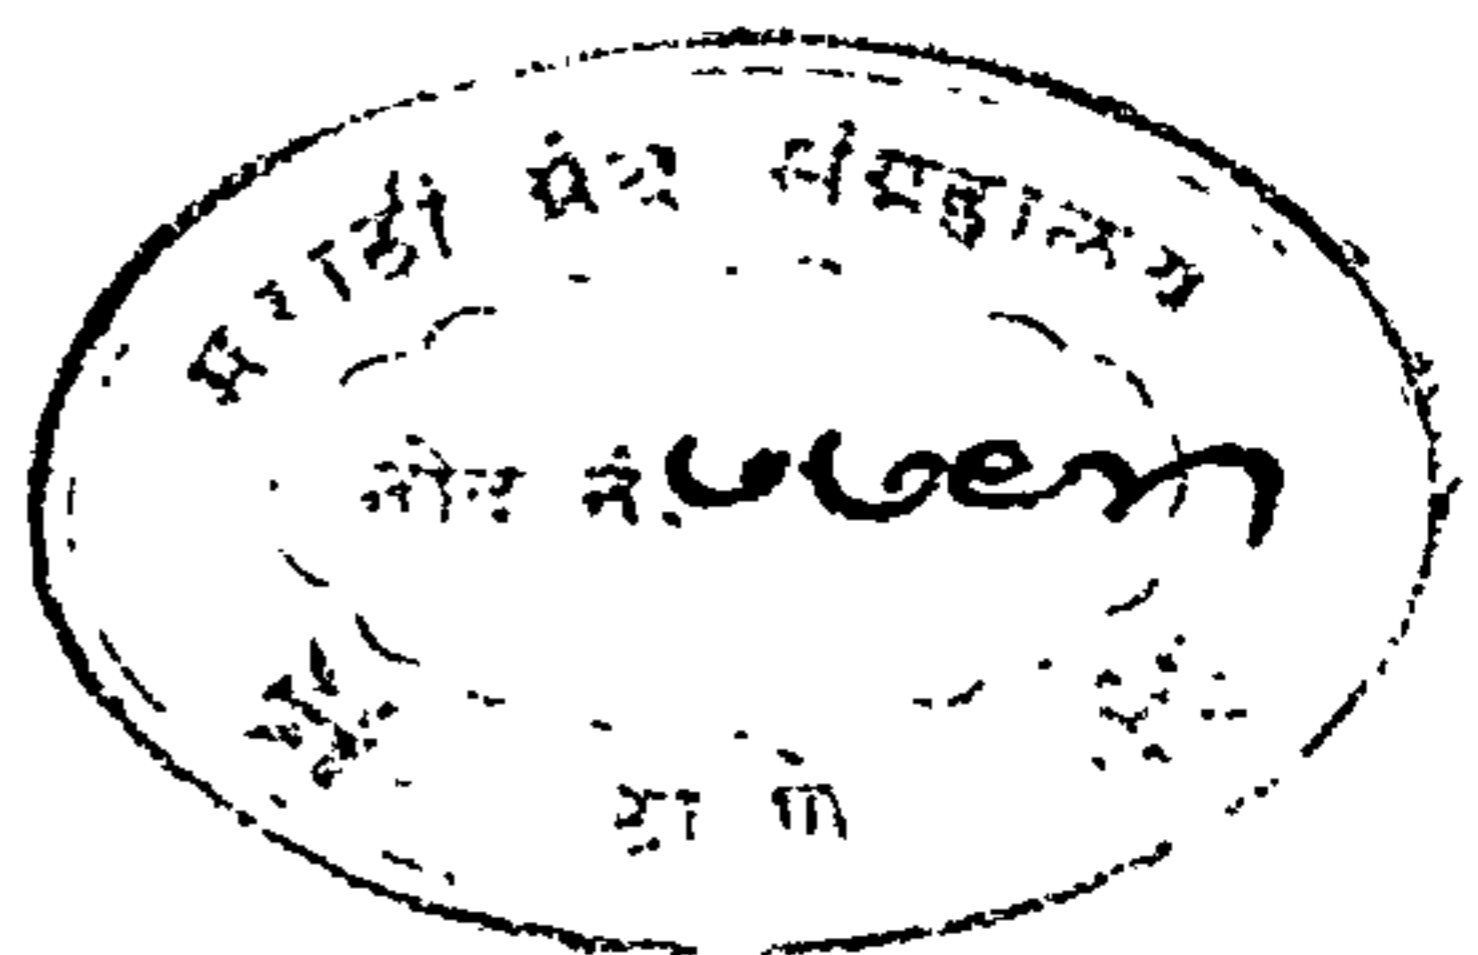 मराठी ग्रंथ संग्रहालय
नोंद नं.
ठाणें